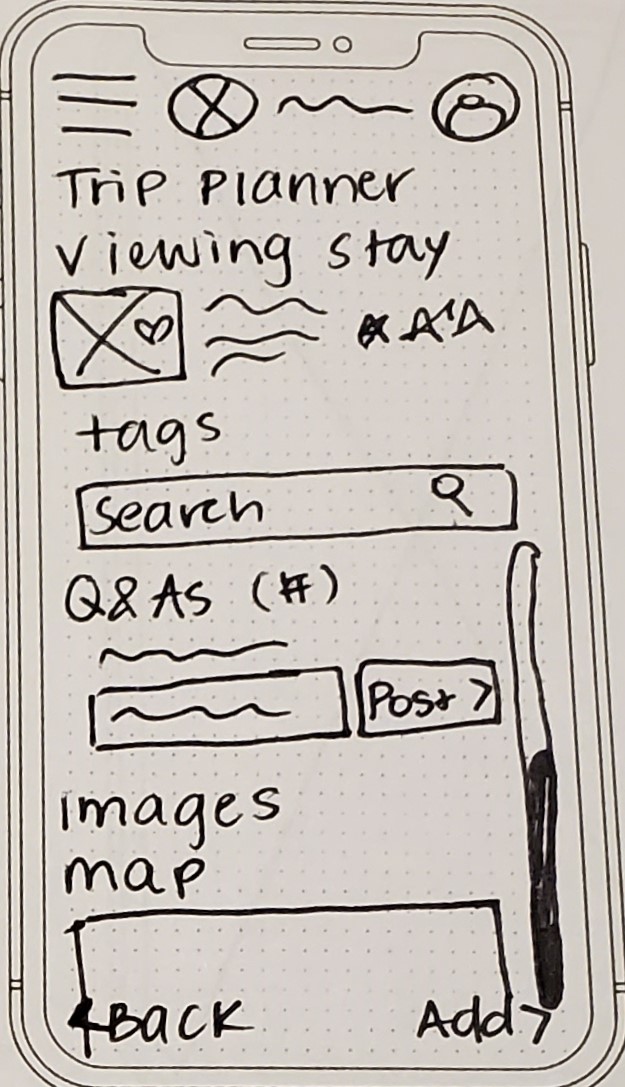 Trip Planner
Viewing stay
tags
Search
Q&As (#)
Post >
images
map
Back
Add >